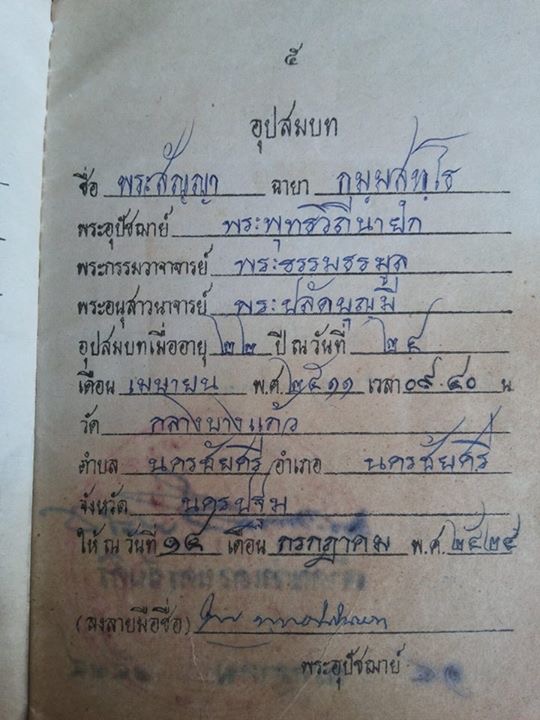 ๕
อุปสมบท
ชื่อ พระสัญญา ฉายา
พระอุปัชฌาย์ พระพุทธวิถีนายก
พระกรรมวาจาจารย์ พระธรรมธรมูล
พระอนุสาวนาจารย์ พระปลัดบุญมี
อุปสมบทเมื่ออายุ ๒๒ ปี ณ วันที่ ๒๔
เดือน เมษายน พ.ศ. ๒๕๑๑ เวลา ๐๙.๔๐ น
วัด กลางบางแก้ว
ตำบล นครชัยศรี อำเภอ นครชัยศรี
จังหวัด นครปฐม
ให้ ณ วันที่ ๑๔ เดือน กรกฎาคม พ.ศ.
(ลงลายมือชื่อ)
พระอุปัชฌาย์